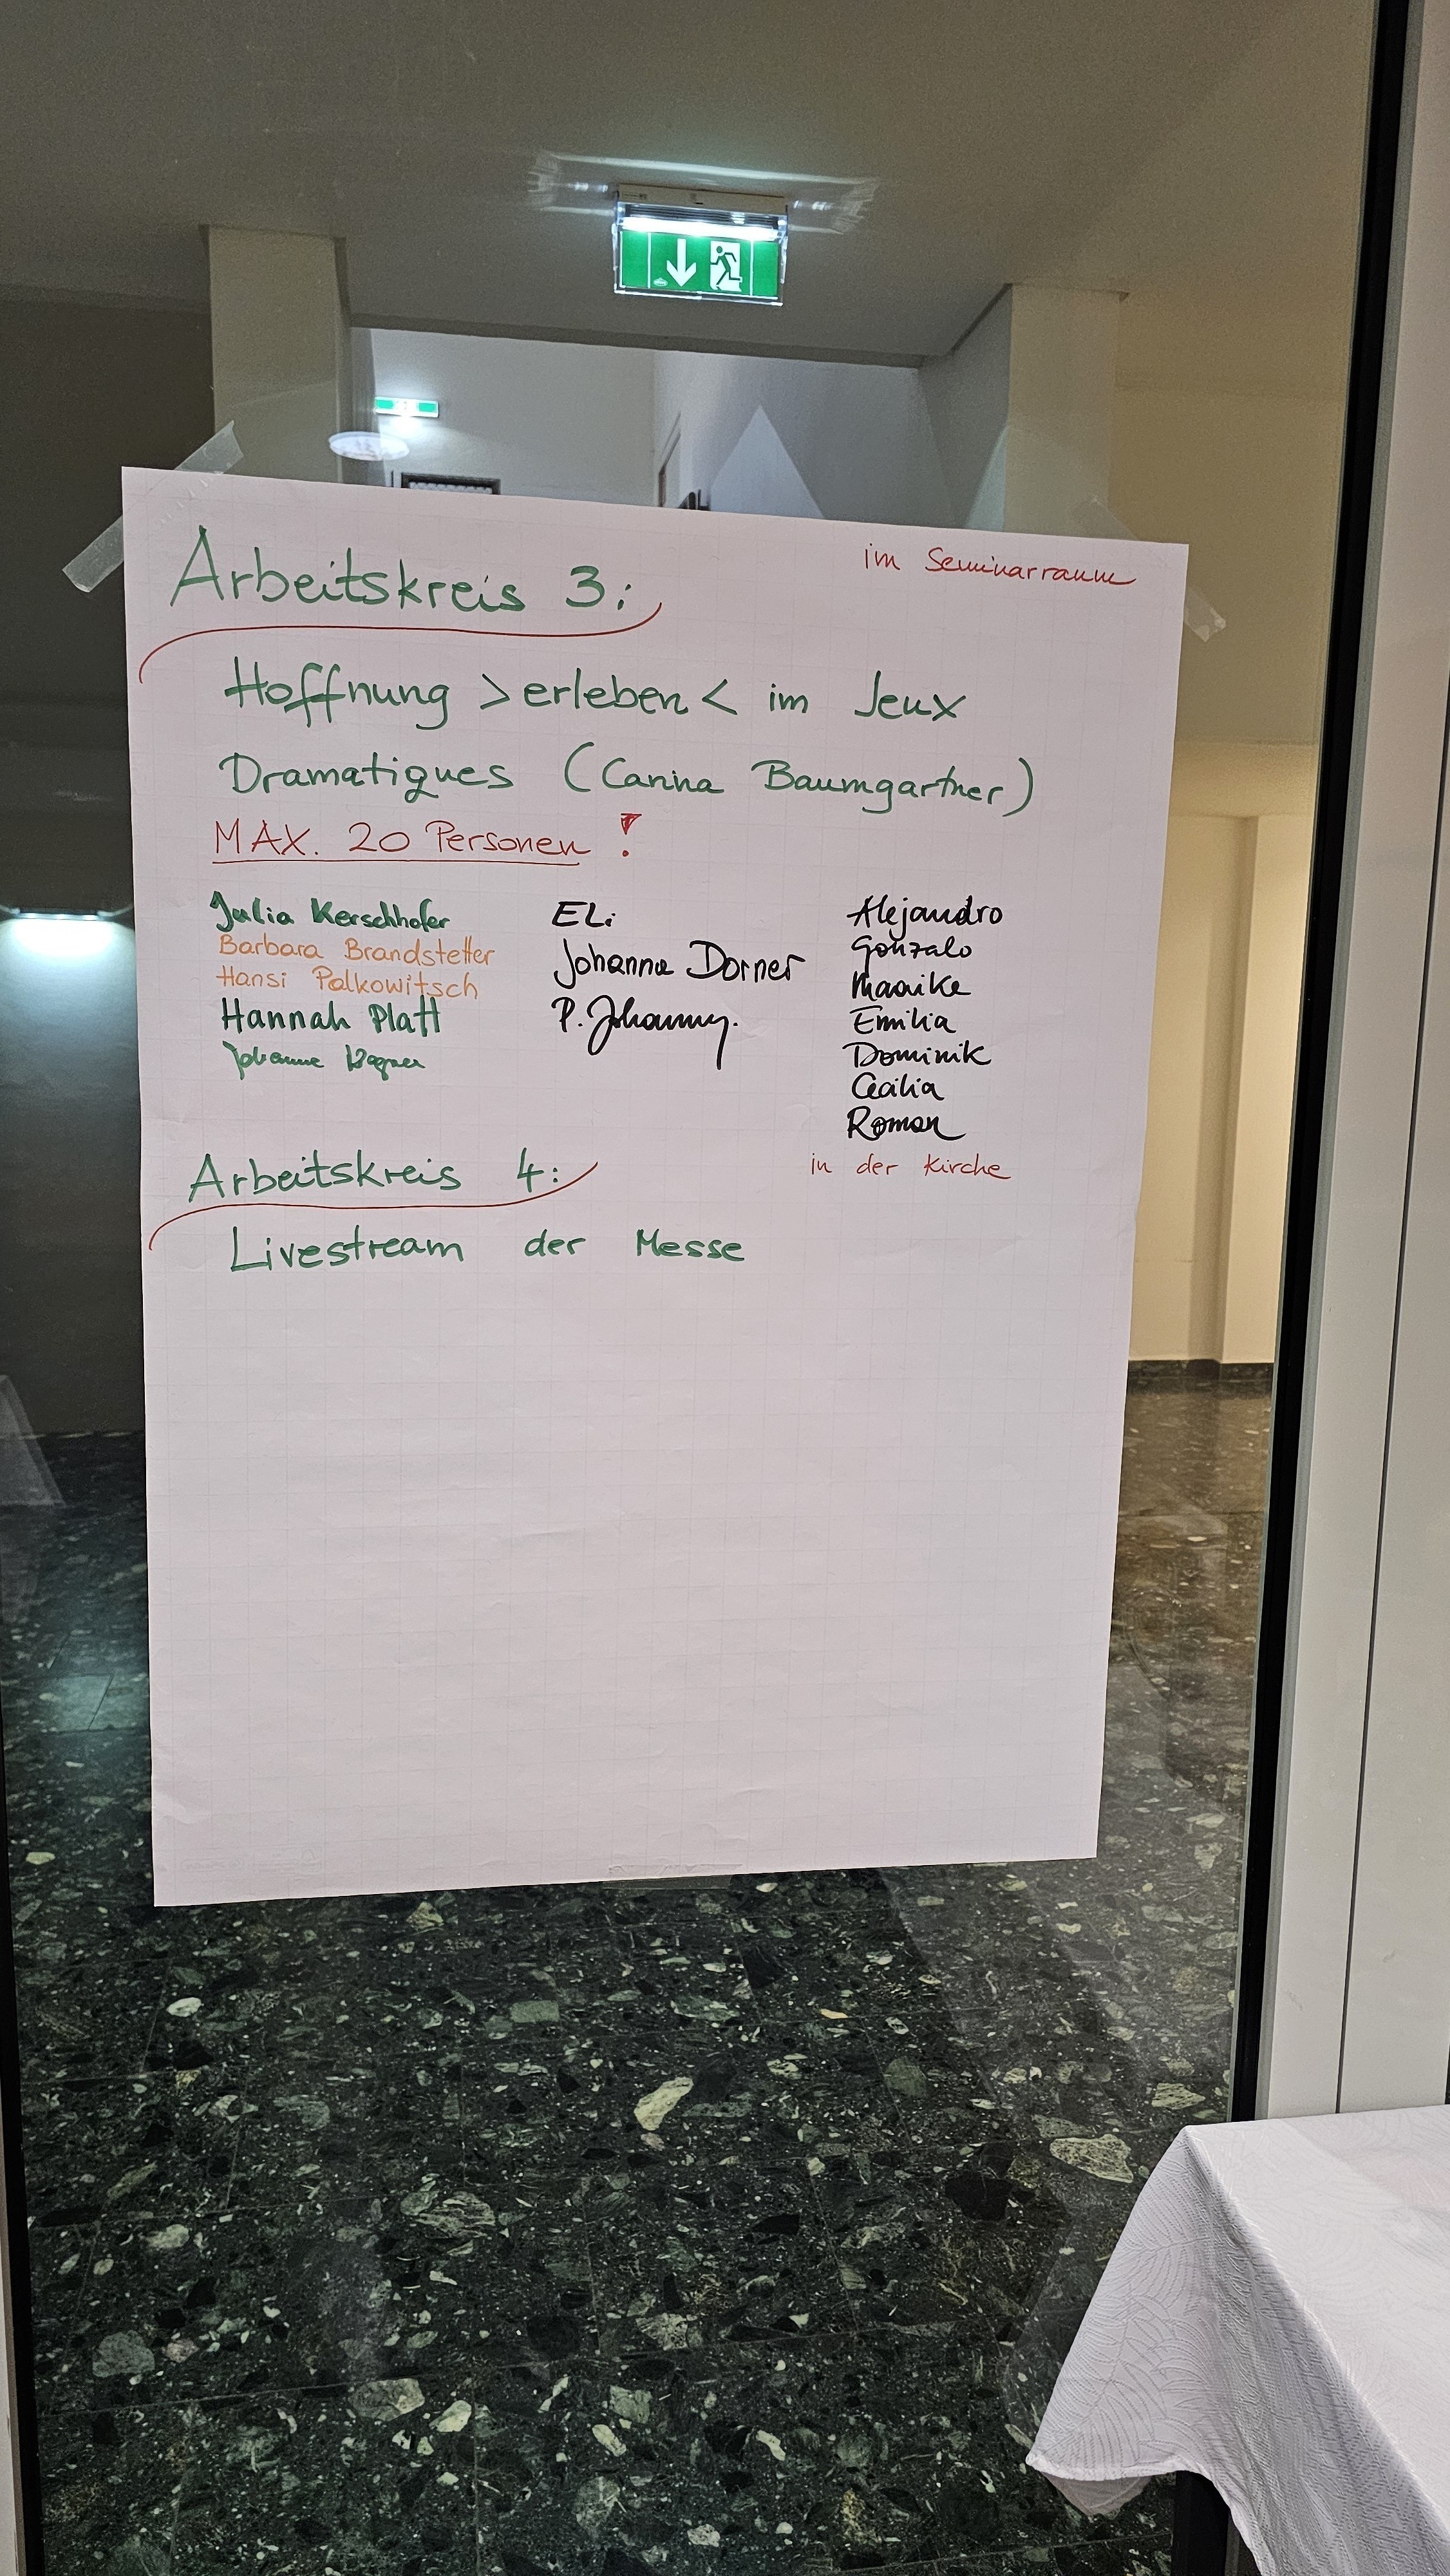 Arbeitskreis 3:
im Seminarraum
Hoffnung >erleben< im Jeux
Dramatiques (Carina Baumgartner)
MAX. 20 Personen!
Julia Kerschhofer
Barbara Brandstetter
Hansi Palkowitsch
Hannah Platt
Johanna Wagner
ELi
Johanna Dorner
P. Johannes
Alejandro
Gonzalo
Maaike
Emilia
Dominik
Cecilia
Roman
Arbeitskreis 4:
in der Kirche
Livestream der Messe